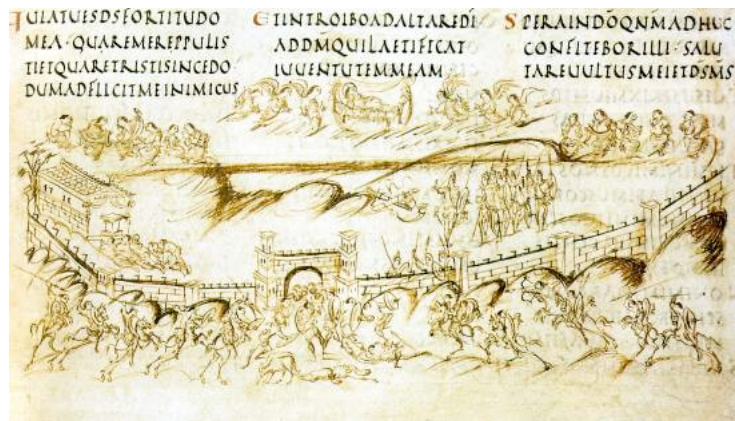 QUIATUESDSFORTITUDO
MEA·QUAREMEREPPULIS
TIETQUARETRISTISINCEDO·
DUMADFLICITMEINIMICUS
ETINTROIBOADALTAREDI
ADDMQUILAETIFICAT
IUUENTUTEMMEAM
SPERAINDOQNMADHUC
CONFITEBORILLI·SALU
TAREUULTUSMEIETDSMS